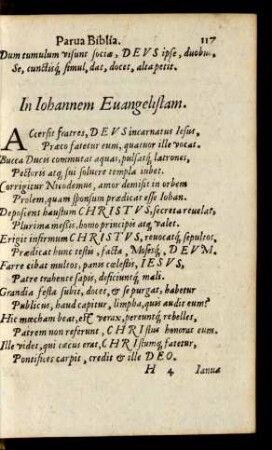 Parua Biblia. 117
Dum tumulum visunt sociæ, DEVS ipse, duobus
Se, cunctisq; simul, dat, docet, alta petit.
In Iohannem Euangelistam.
ACcersit fratres, DEVS incarnatus Iesus,
Præco fatetur eum, quatuor ille vocat.
Bucca Ducis commutat aquas, pulsatq; latrones,
Pectoris atq; sui soluere templa iubet.
Corrigitur Nicodemus, amor demisit in orbem
Prolem, quam sponsum prædicat esse Iohan.
Deposcens haustum CHRISTVS, secreta reuelat,
Plurima mestis, homo principis atq; valet.
Erigit infirmum CHRISTVS, reuocatq; sepultos,
Prædicat hunc testis, facta, Mosesq;, DEVM.
Farre cibat multos, panis cælestis, IESVS,
Patre trahente sapis, deficiuntq; mali.
Grandia festa subit, docet, & se purgat, habetur
Publicus, haud capitur, limpha, quis audit eum?
Hic mœcham beat, est verax, pereuntq; rebelles,
Patrem non referunt, CHRIstus honorat eum.
Ille videt, qui cæcus erat, CHRIstumq; fatetur,
Pontifices carpit, credit & ille DEO.
H 4 Ianua